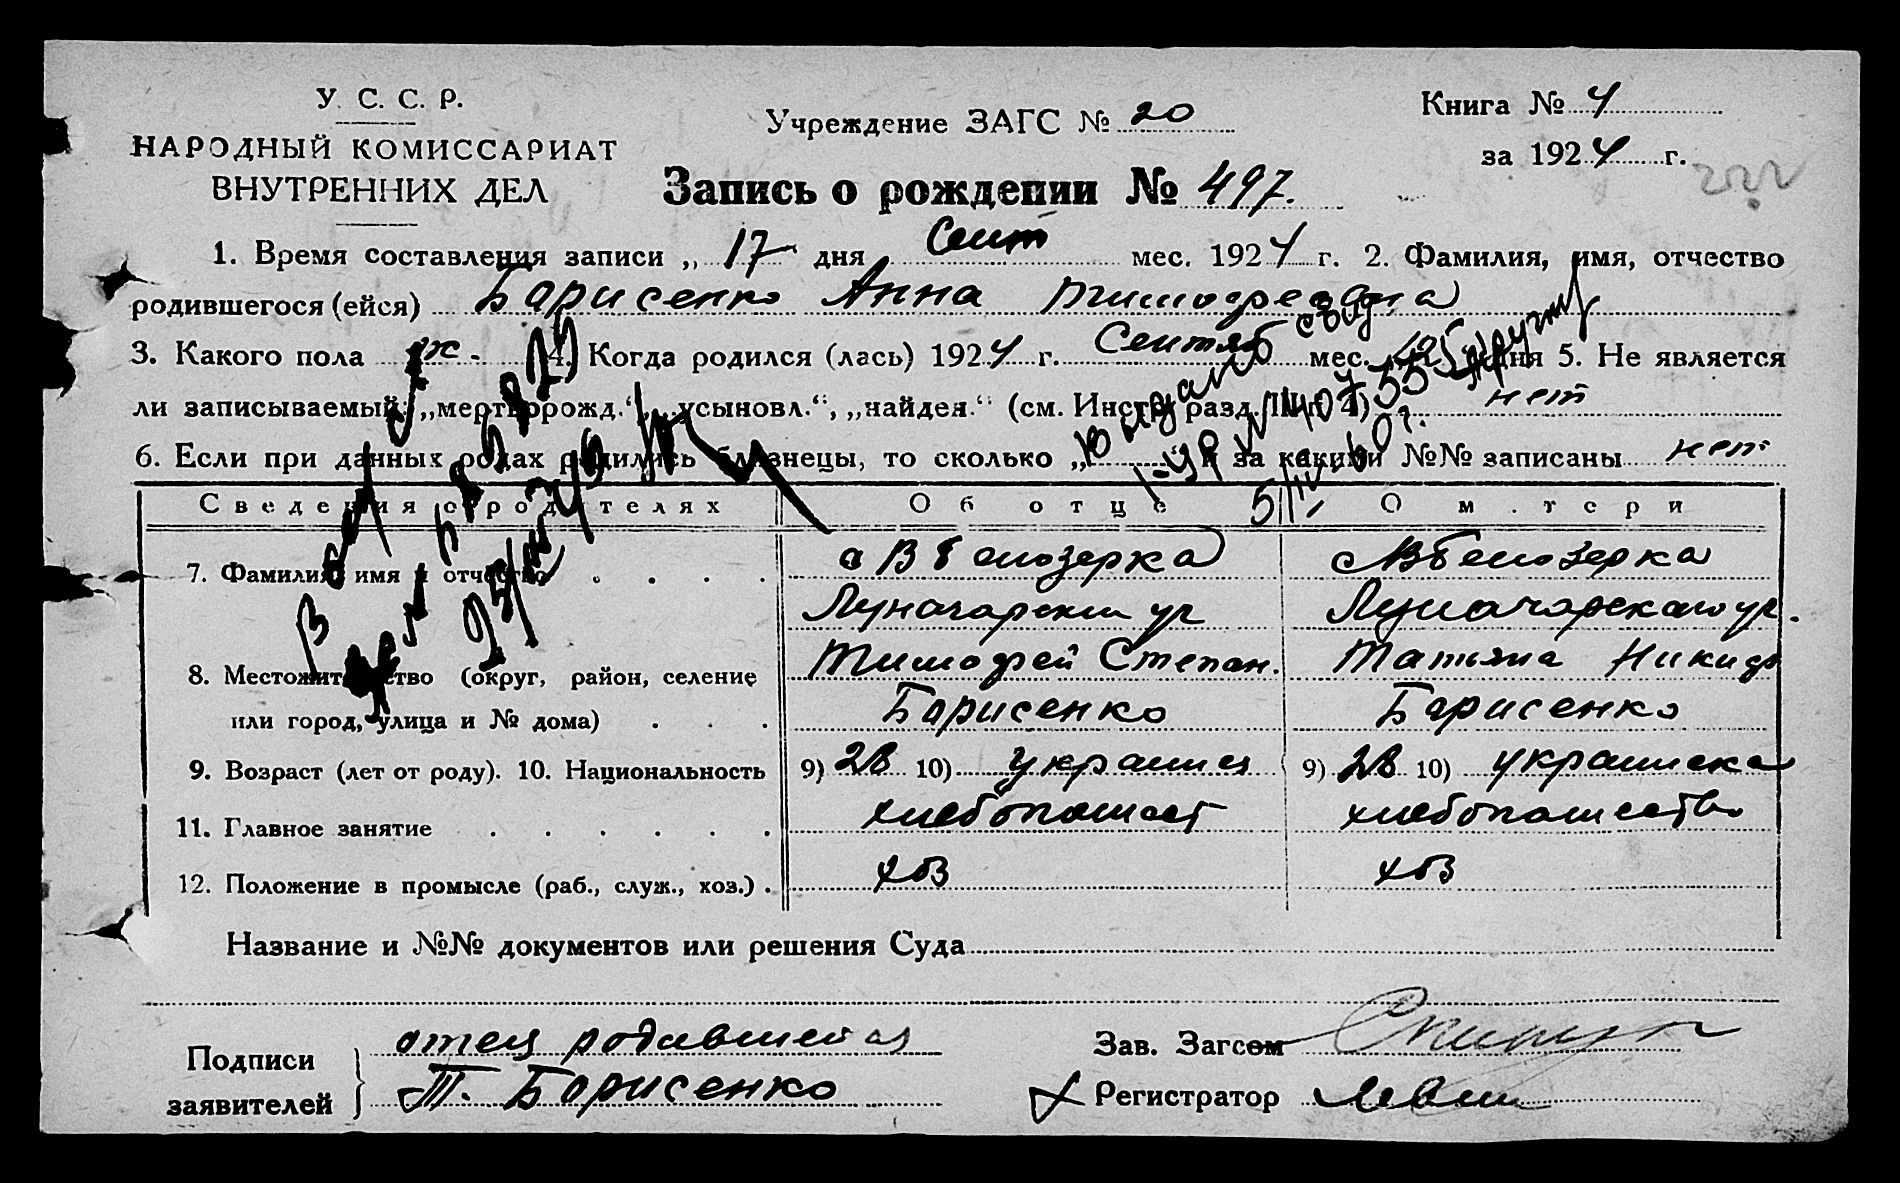 У. С. С. Р.
НАРОДНЫЙ КОМИССАРИАТ
ВНУТРЕННИХ ДЕЛ
Учреждение ЗАГС № 20
Книга № 4
за 1924 г.
Запись о рождении № 497.
1. Время составления записи „ 17 дня Сент мес. 1924 г. 2. Фамилия, имя, отчество
родившегося (ейся) Барисенко Анна Тимофеевна
3. Какого пола ж. 4. Когда родился (лась) 1924 г. Сентяб мес. дня 5. Не является
ли записываемый: „мертворожд.“, „усыновл.“, „найден.“ (см. Инстр. разд. III п. 4) нет
6. Если при данных родах родились близнецы, то сколько „ “ и за какими №№ записаны нет
Выдано свид
5/IV-60 г.
Сведения о родителях Об отце О матери
7. Фамилия, имя и отчество
с В Белозерка
с В Белозерка
Луначарский ул
Луначарского ул.
8. Местожительство (округ, район, селение
или город, улица и № дома)
Тимофей Степан.
Татьяна Никиф
Барисенко
Барисенко
9. Возраст (лет от роду). 10. Национальность 9) 28 10) украинец 9) 28 10) украинска
11. Главное занятие хлебопашест хлебопашество
12. Положение в промысле (раб., служ., хоз.) . хоз хоз
Название и №№ документов или решения Суда
Подписи
заявителей
отец родившейся
Т. Барисенко
Зав. Загсом
Регистратор